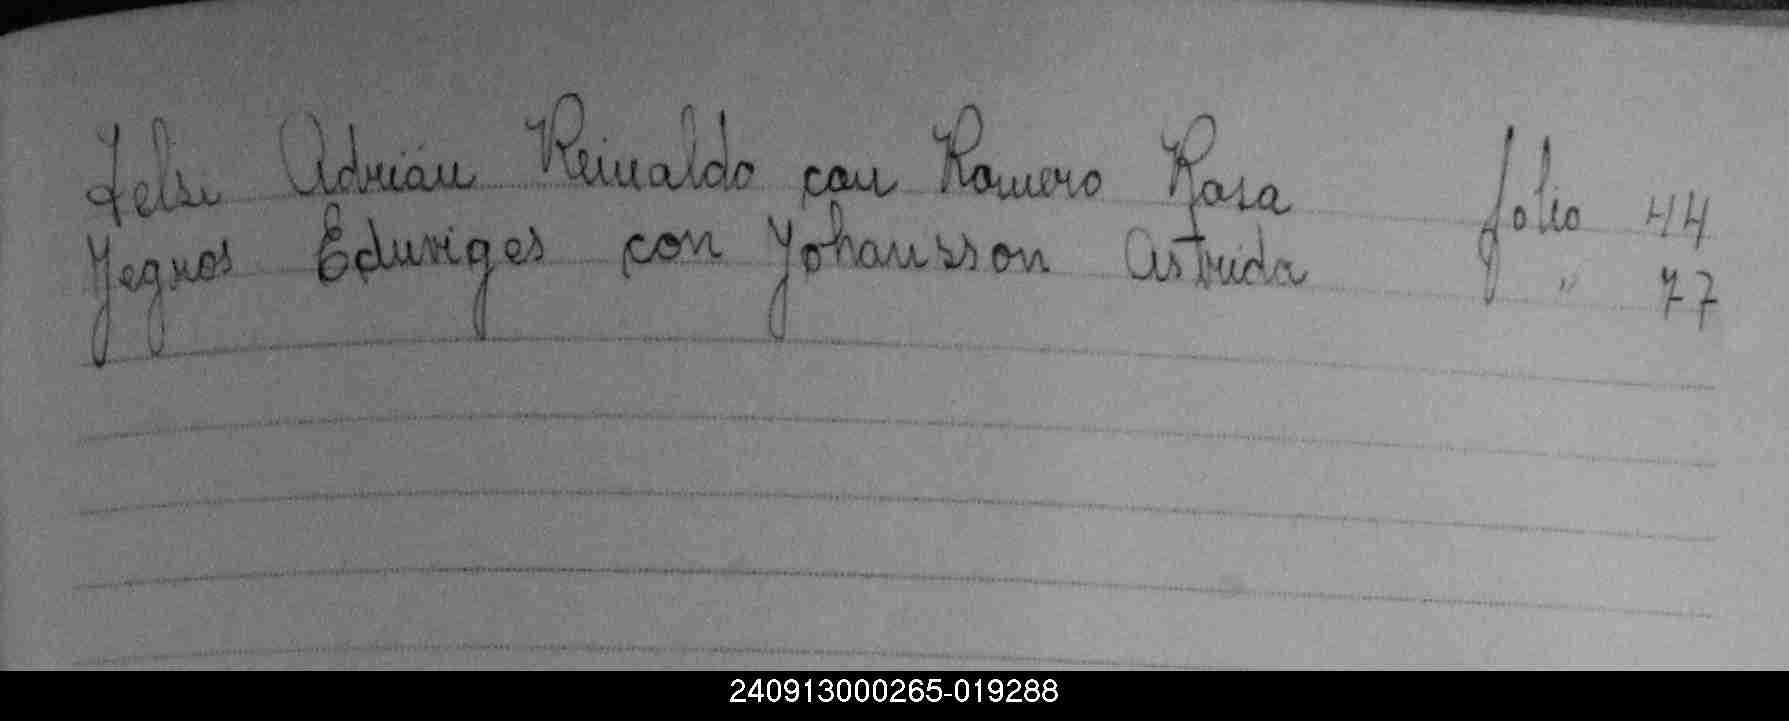 Adrián Reinaldo con Romero Rosa folio 44
Yegros Eduviges con Yohansson Astrida " 77
240913000265-019288